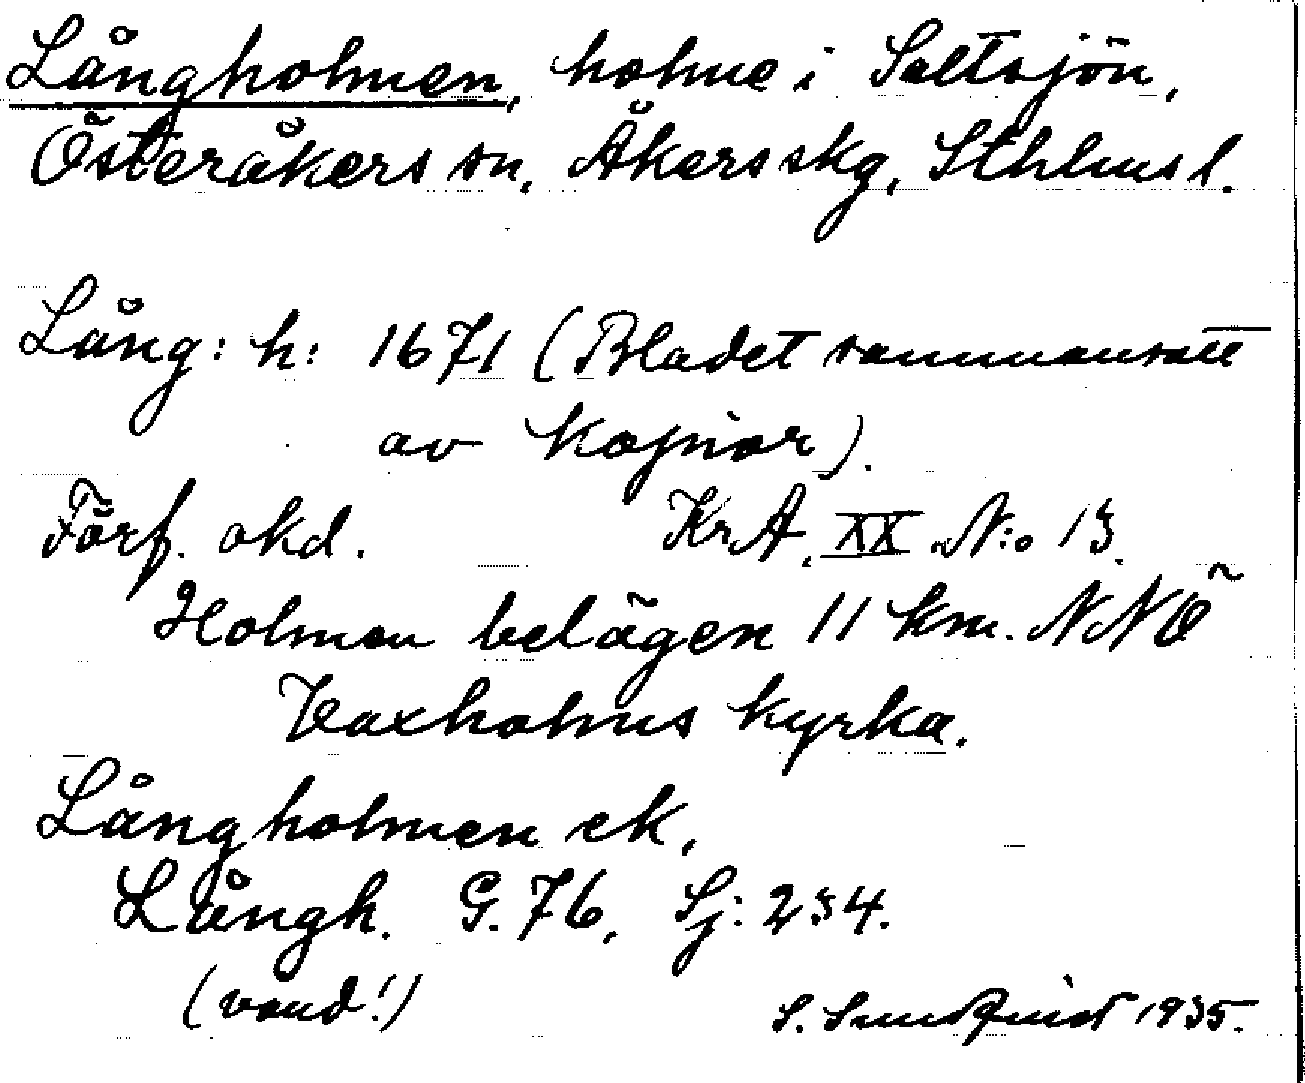 Långholmen, holme i Saltsjön,
Österåkers sn, Åkers skg, Sthlms l.
Lång: h: 1671 (Bladet sammansatt
av kopior).
Förf. okd. KrA, XX N:o 13.
Holmen belägen 11 km. NNÖ
Vaxholms kyrka.
Långholmen ek,
Långh. G. 76, Sj: 234.
(vänd!) S. Sundquist 1935.